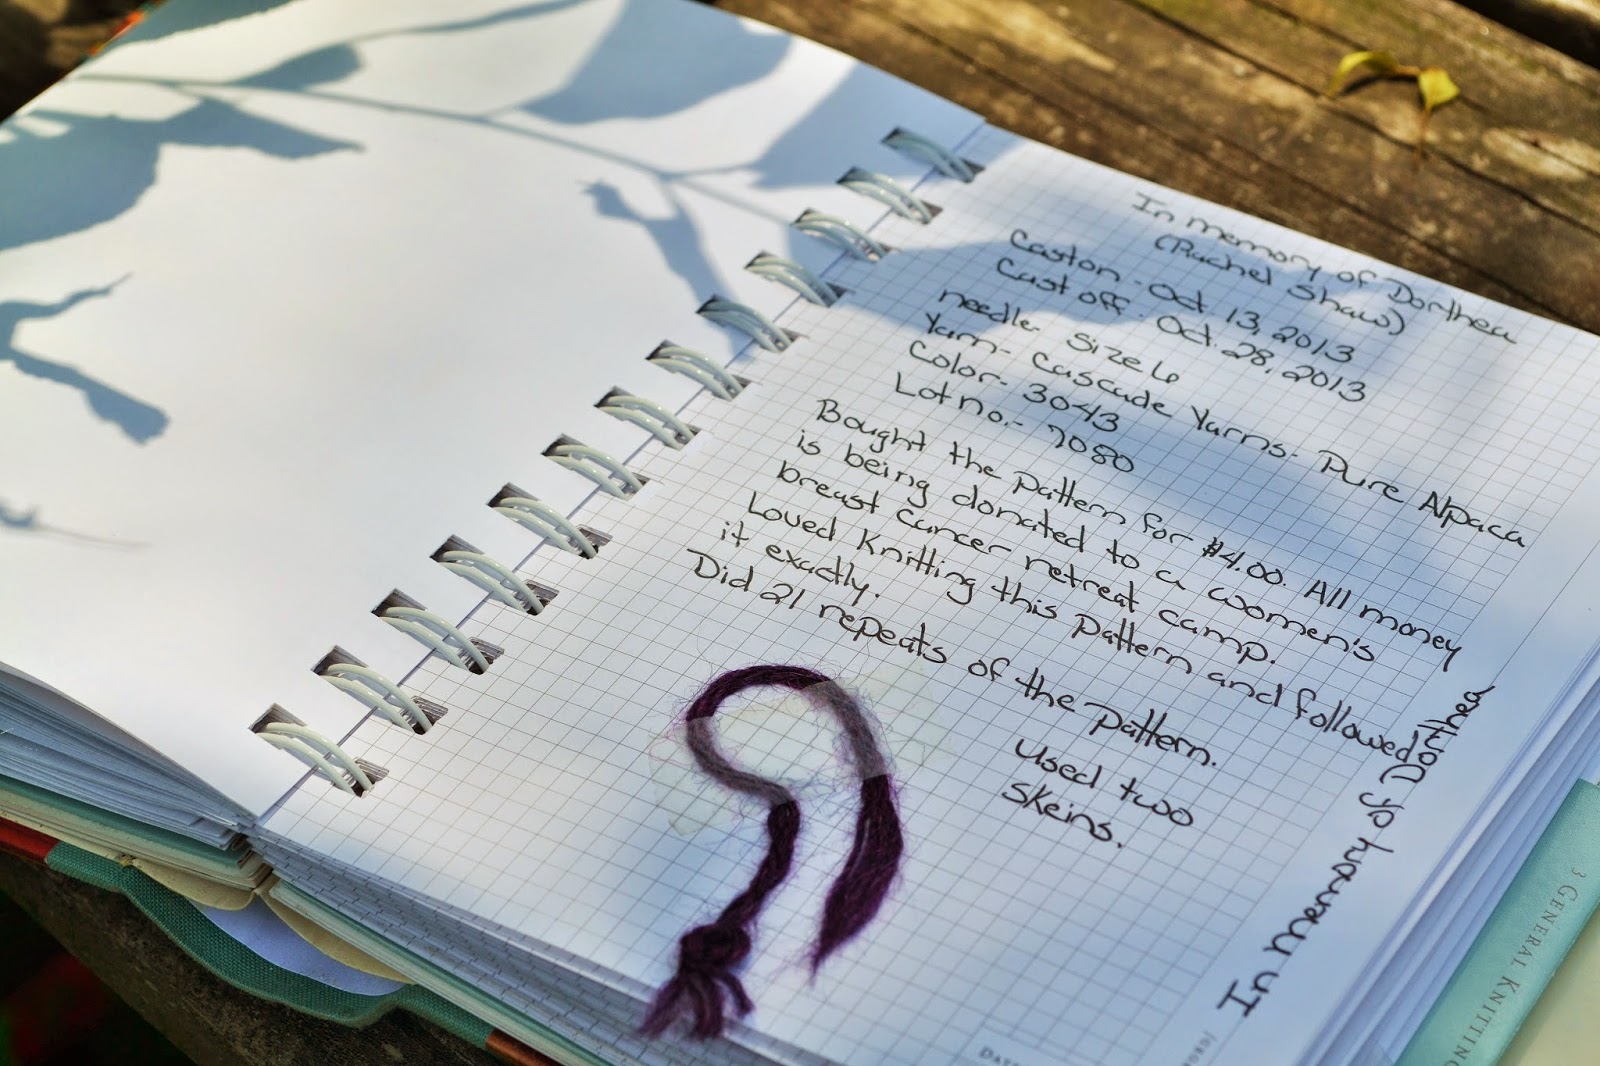 In memory of Dorthea
(Rachel Shaw)
Caston - Oct. 13, 2013
Cast off - Oct. 28, 2013
needle size 6
Yarn - Cascade Yarns - Pure Alpaca
Color - 3043
Lot no. - 7080
Bought the pattern for $4.00. All money
is being donated to a women's
breast cancer retreat camp.
Loved Knitting this pattern and followed
it exactly.
Did 21 repeats of the pattern.
Used two
skeins.
In memory of Dorthea
3 GENERAL KNITTING